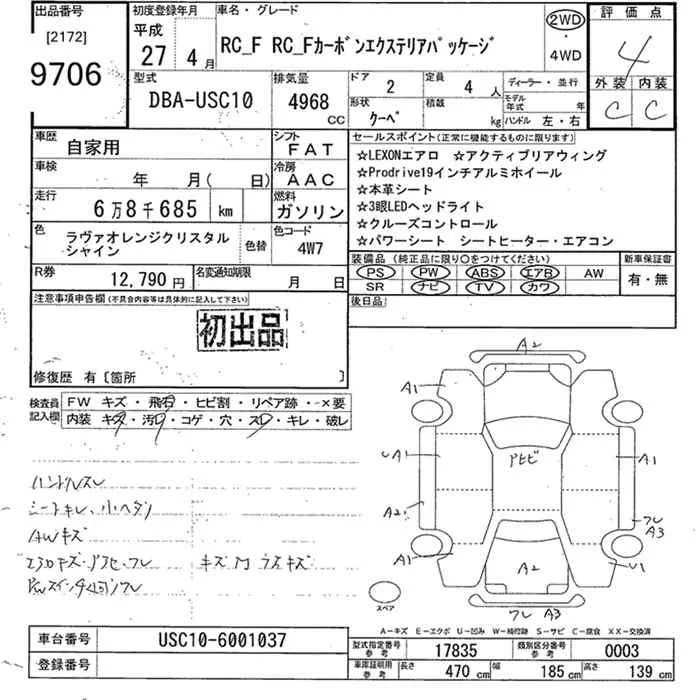 出品番号
[2172]
9706
初度登録年月
平成
27年 4月
車名・グレード
RC_F RC_Fカーボンエクステリアパッケージ
2WD
・
4WD
評価点
4
外装 内装
C C
型式
DBA-USC10
排気量
4968 CC
ドア 2
定員 4 人
ディーラー・並行
形状 クーペ
積載 kg
モデル年式 年
ハンドル 左・右
車歴 自家用
シフト FAT
車検 年 月( 日)
冷房 AAC
走行 6万8千685 km
燃料 ガソリン
色 ラヴァオレンジクリスタルシャイン
色替
色コード 4W7
R券 12,790 円
名変通知期限 月 日
セールスポイント(正常に機能するものに限ります)
☆LEXONエアロ ☆アクティブリアウィング
☆Prodrive19インチアルミホイール
☆本革シート
☆3眼LEDヘッドライト
☆クルーズコントロール
☆パワーシート シートヒーター・エアコン
装備品 (純正品に限り○をつけてください)
新車保証書
PS PW ABS エアB AW
有・無
SR ナビ TV カワ
後日品
注意事項申告欄(不具合内容等は具体的に記入して下さい)
初出品
修復歴 有〔箇所 〕
検査員記入欄
FW キズ・飛石・ヒビ割・リペア跡・×要
内装 キズ・汚レ・コゲ・穴・スレ・キレ・破レ
ハンドルスレ
シートキレ、小ヘタリ
AWキズ
エアロキズ・アタセ・ワレ キズ 凹 ラスキズ
A2
A1
A1
UA1
アヒビ
A2
ワレ
A3
A1
A2
U1
ワレ A3
スペア
A-キズ E-エクボ U-凹み W-補修跡 S-サビ C-腐食 XX-交換済
車台番号 USC10-6001037
登録番号
型式指定番号 参考 17835
類別区分番号 参考 0003
車庫証明用 参考 長さ 470 cm 幅 185 cm 高さ 139 cm